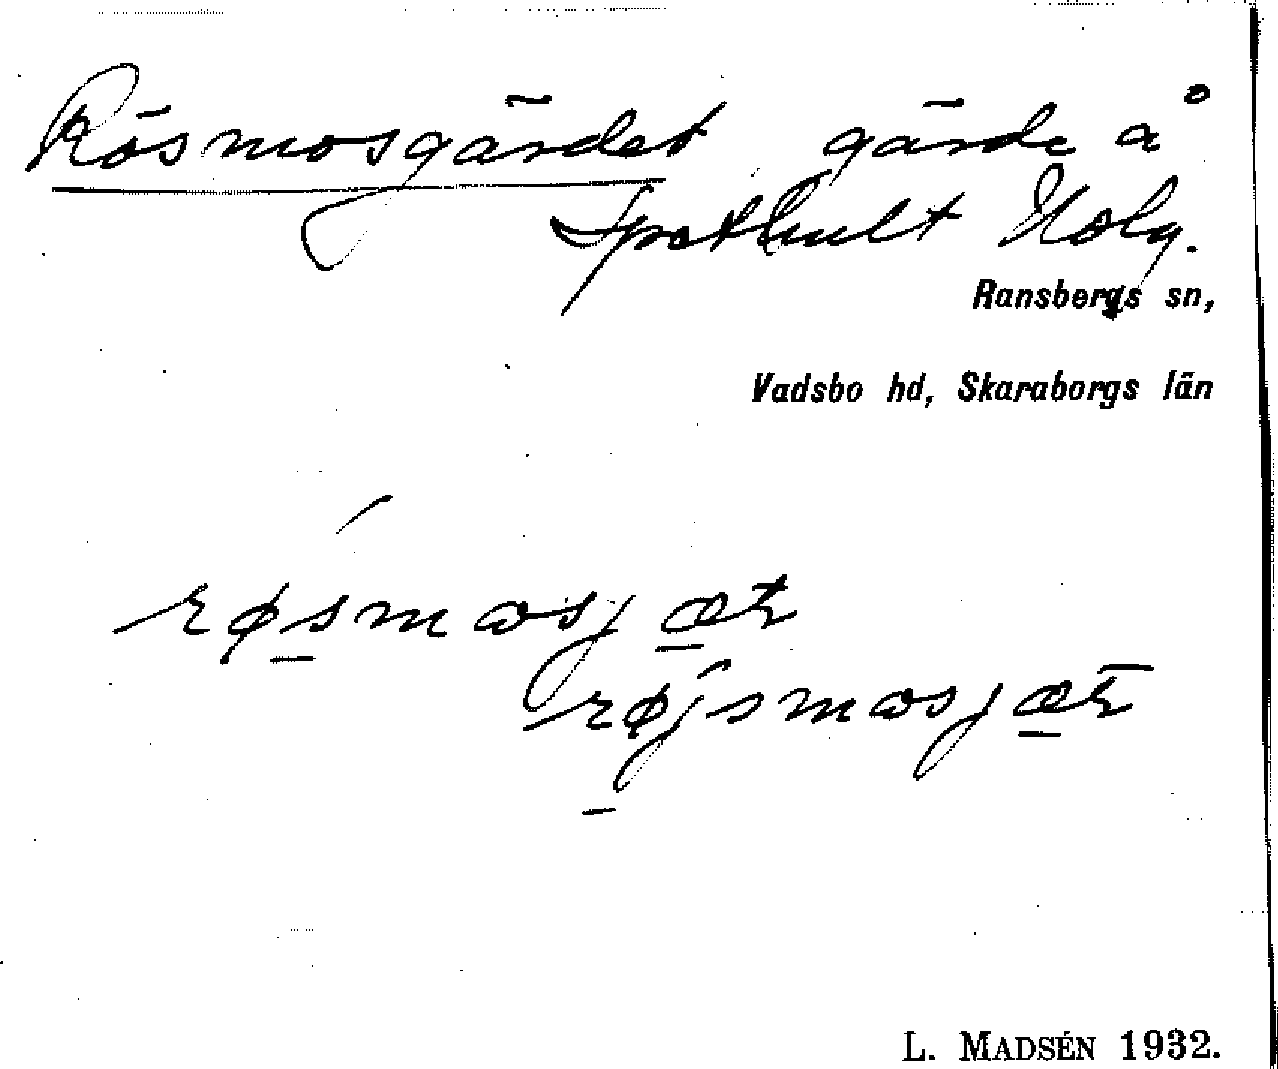 Rösmosgärdet, gärde å
Spethult Holg.
Ransbergs sn,
Vadsbo hd, Skaraborgs län
røsmosjæt
røjsmosjæt
L. MADSÉN 1932.